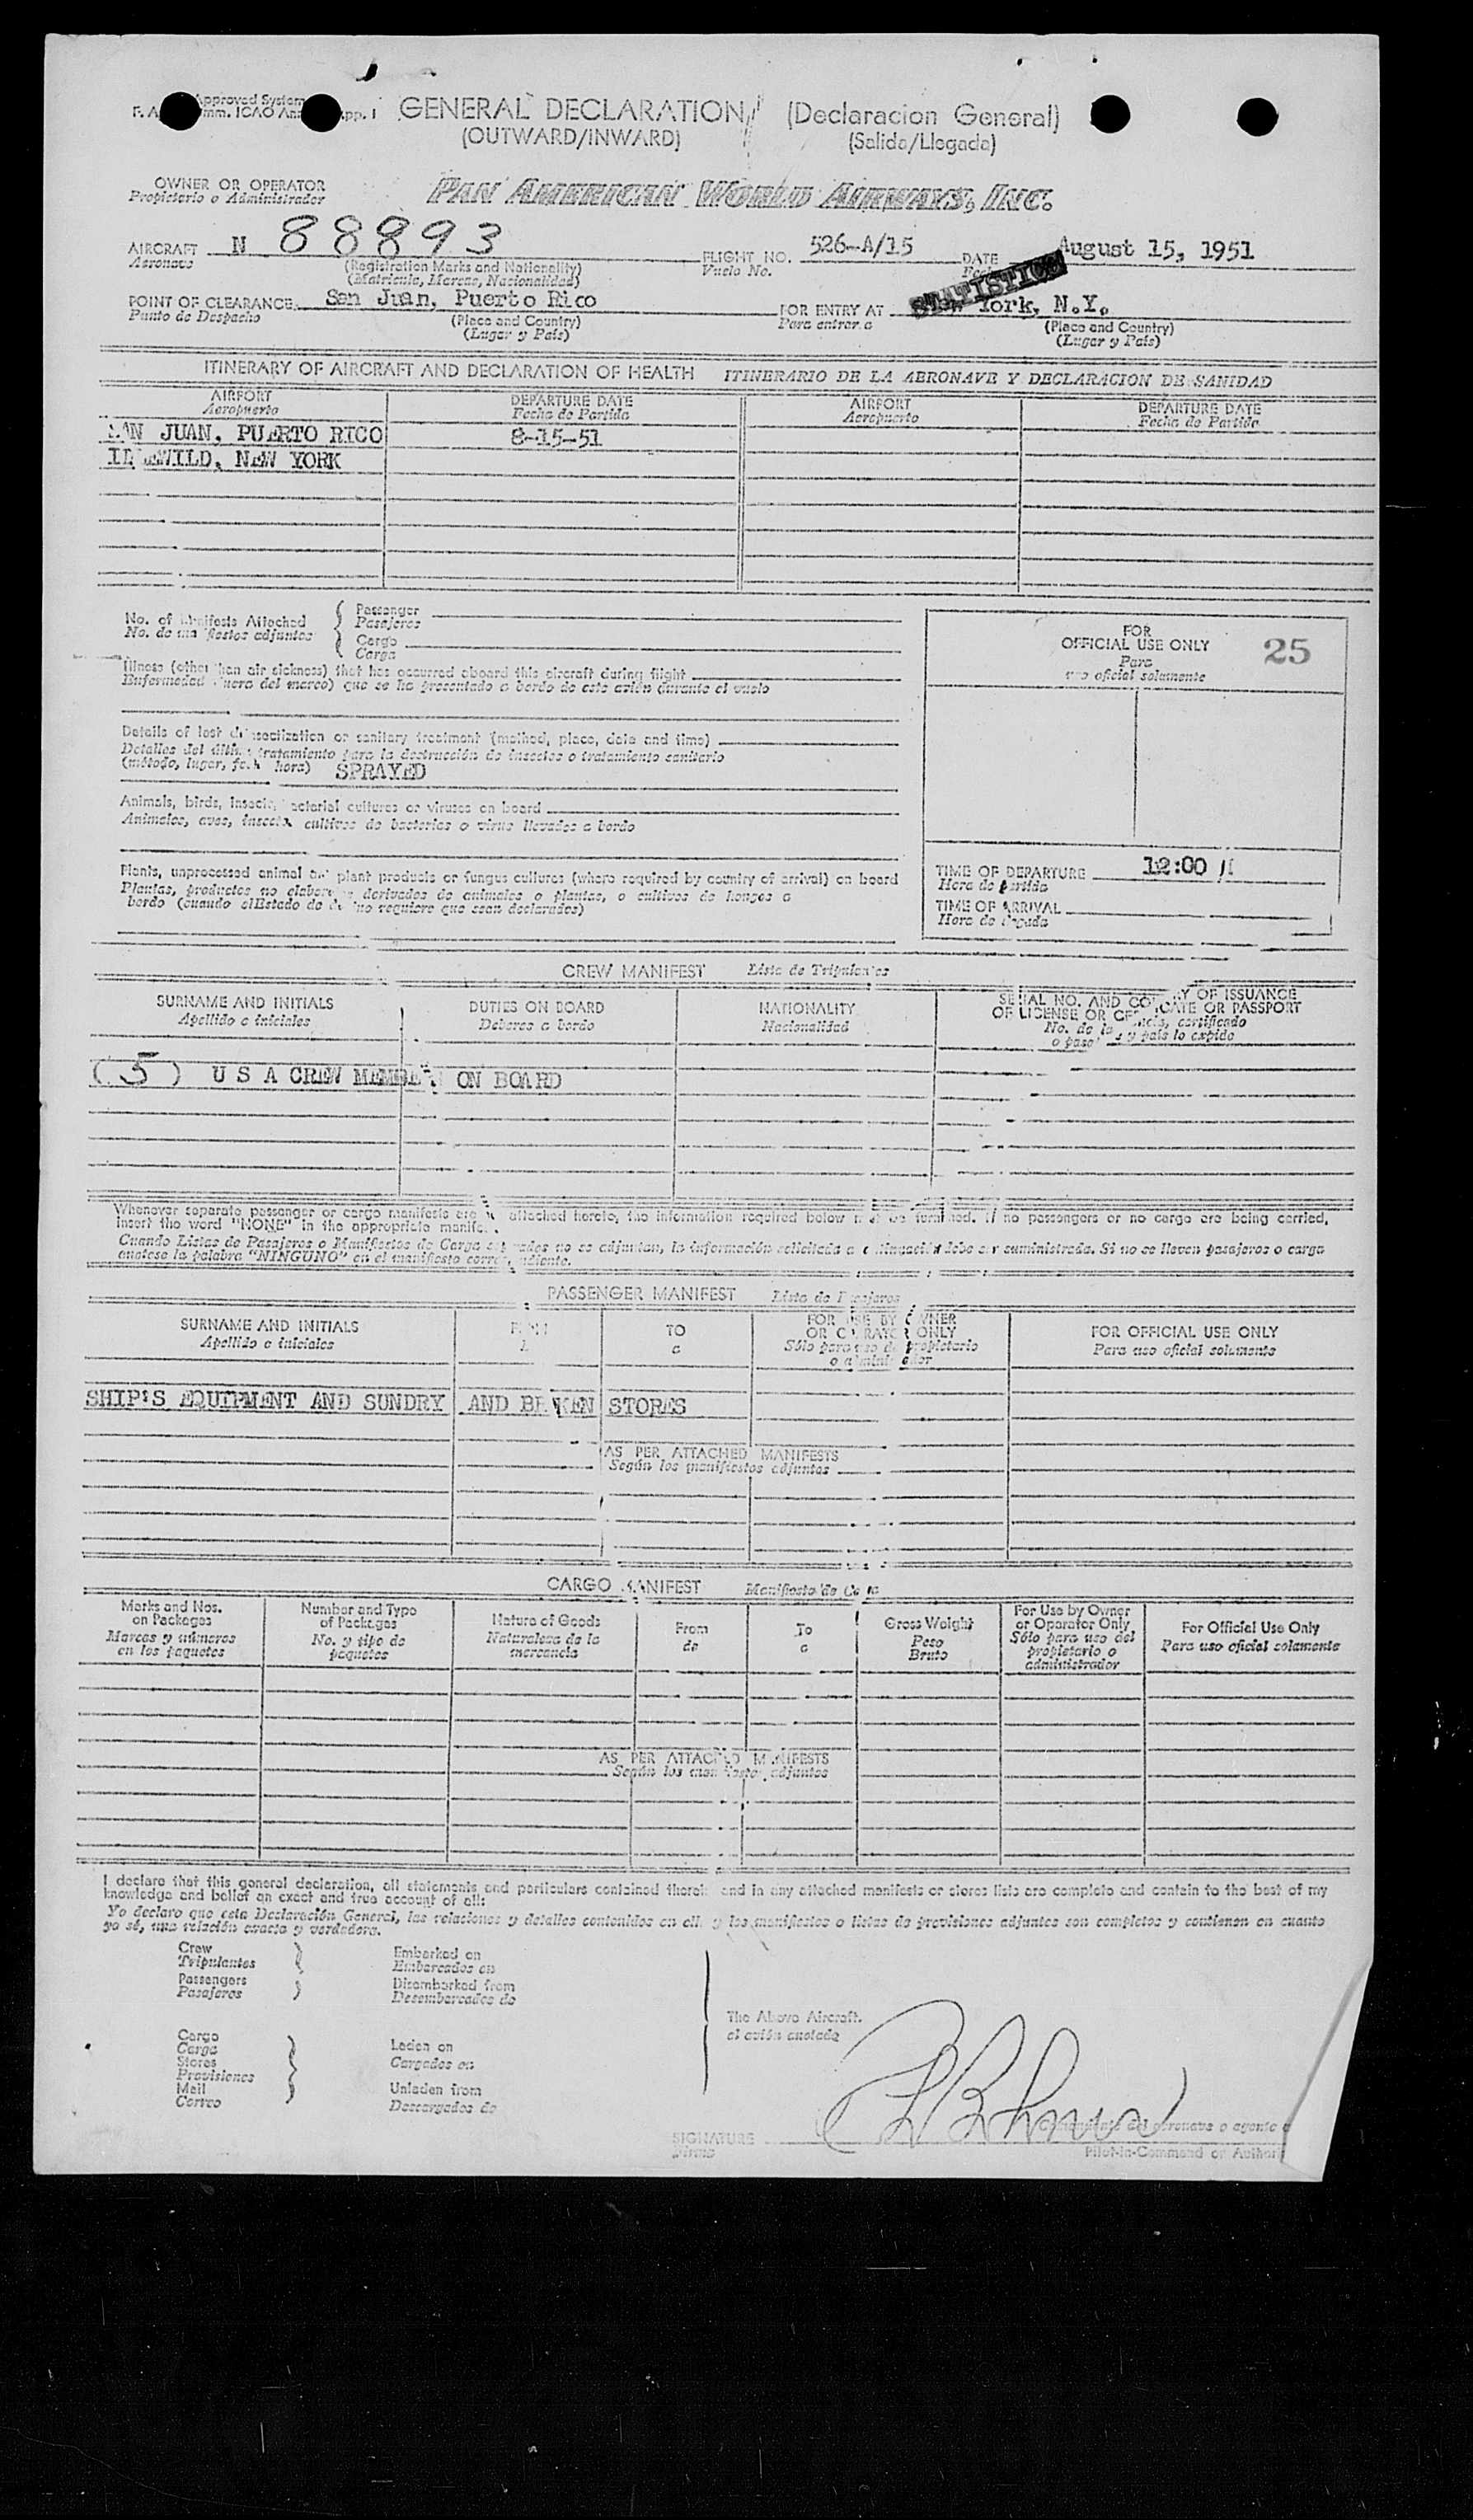 Approved System
F. A. mm. ICAO An pp. 1
GENERAL DECLARATION (Declaracion General)
(OUTWARD/INWARD) (Salida/Llegada)
OWNER OR OPERATOR
Propietario o Administrador
PAN AMERICAN WORLD AIRWAYS, INC.
AIRCRAFT N 88893 FLIGHT NO. 526-A/15 DATE August 15, 1951
Aeronave (Registration Marks and Nationality) Vuelo No.
(Matricula, Marcas, Nacionalidad)
STATISTICS
POINT OF CLEARANCE San Juan, Puerto Rico FOR ENTRY AT York, N.Y.
Punto de Despacho (Place and Country) Para entrar a (Place and Country)
(Lugar y País) (Lugar y País)
ITINERARY OF AIRCRAFT AND DECLARATION OF HEALTH ITINERARIO DE LA AERONAVE Y DECLARACION DE SANIDAD
AIRPORT DEPARTURE DATE AIRPORT DEPARTURE DATE
Aeropuerto Fecha de Partida Aeropuerto Fecha de Partida
AN JUAN, PUERTO RICO 8-15-51
EWILD, NEW YORK
No. of Manifests Attached
No. de manifiestos adjuntos
Passenger
Pasajeros
Cargo
Carga
Illness (other than air sickness) that has occurred aboard this aircraft during flight
Enfermedad fuera del mareo) que se ha presentado a bordo de este avión durante el vuelo
Details of last disinsectization or sanitary treatment (method, place, date and time)
Detalles del último tratamiento para la destrucción de insectos o tratamiento sanitario
(método, lugar, fecha hora) SPRAYED
Animals, birds, insects, bacterial cultures or viruses on board
Animales, aves, insectos cultivos de bacterias o virus llevados a bordo
Plants, unprocessed animal and plant products or fungus cultures (where required by country of arrival) on board
Plantas, productos no elaborados derivados de animales o plantas, o cultivos de hongos a
bordo (cuando elEstado de destino requiere que sean declarados)
FOR
OFFICIAL USE ONLY 25
Para
uso oficial solamente
TIME OF DEPARTURE 12:00
Hora de partida
TIME OF ARRIVAL
Hora de llegada
CREW MANIFEST Lista de Tripulantes
SURNAME AND INITIALS DUTIES ON BOARD NATIONALITY SERIAL NO. AND COUNTRY OF ISSUANCE
Apellido e iniciales Deberes a bordo Nacionalidad OF LICENSE OR CERTIFICATE OR PASSPORT
No. de la certificado
o pasa y país lo expido
(5) U S A CREW MEMBE ON BOARD
Whenever separate passenger or cargo manifests are not attached hereto, the information required below must be furnished. If no passengers or no cargo are being carried,
insert the word "NONE" in the appropriate manifest.
Cuando Listas de Pasajeros o Manifiestos de Carga separados no se adjuntan, la información solicitada a continuación debe ser suministrada. Si no se lleven pasajeros o carga
anotese la palabra "NINGUNO" en el manifiesto correspondiente.
PASSENGER MANIFEST Lista de Pasajeros
SURNAME AND INITIALS FROM TO FOR USE BY OWNER FOR OFFICIAL USE ONLY
Apellido e iniciales a OR OPERATOR ONLY Para uso oficial solamente
Sólo para uso del propietario
o administrador
SHIP'S EQUIPMENT AND SUNDRY AND BROKEN STORES
AS PER ATTACHED MANIFESTS
Según los manifiestos adjuntos
CARGO MANIFEST Manifiesto de Carga
Marks and Nos. on Packages
Marcas y números en los paquetes
Number and Type of Packages
No. y tipo de paquetes
Nature of Goods
Naturaleza de la mercancia
From
de
To
a
Gross Weight
Peso Bruto
For Use by Owner or Operator Only
Sólo para uso del propietario o administrador
For Official Use Only
Para uso oficial solamente
AS PER ATTACHED MANIFESTS
Según los manifiestos adjuntos
I declare that this general declaration, all statements and particulars contained therein and in any attached manifests or stores lists are complete and contain to the best of my
knowledge and belief an exact and true account of all:
Yo declaro que esta Declaración General, las relaciones y detalles contenidos en ella y los manifiestos o listas de provisiones adjuntes son completos y contienen en cuanto
yo sé, una relación exacta y verdadera.
Crew
Tripulantes
Passengers
Pasajeros
Embarked on
Embarcados en
Disembarked from
Desembarcados de
Cargo
Carga
Stores
Provisiones
Mail
Correo
Laden on
Cargados en
Unladen from
Descargados de
The Above Aircraft.
el avión anotado
SIGNATURE
Firma
Comandante del aeronave o agente
Pilot-in-Command or Author